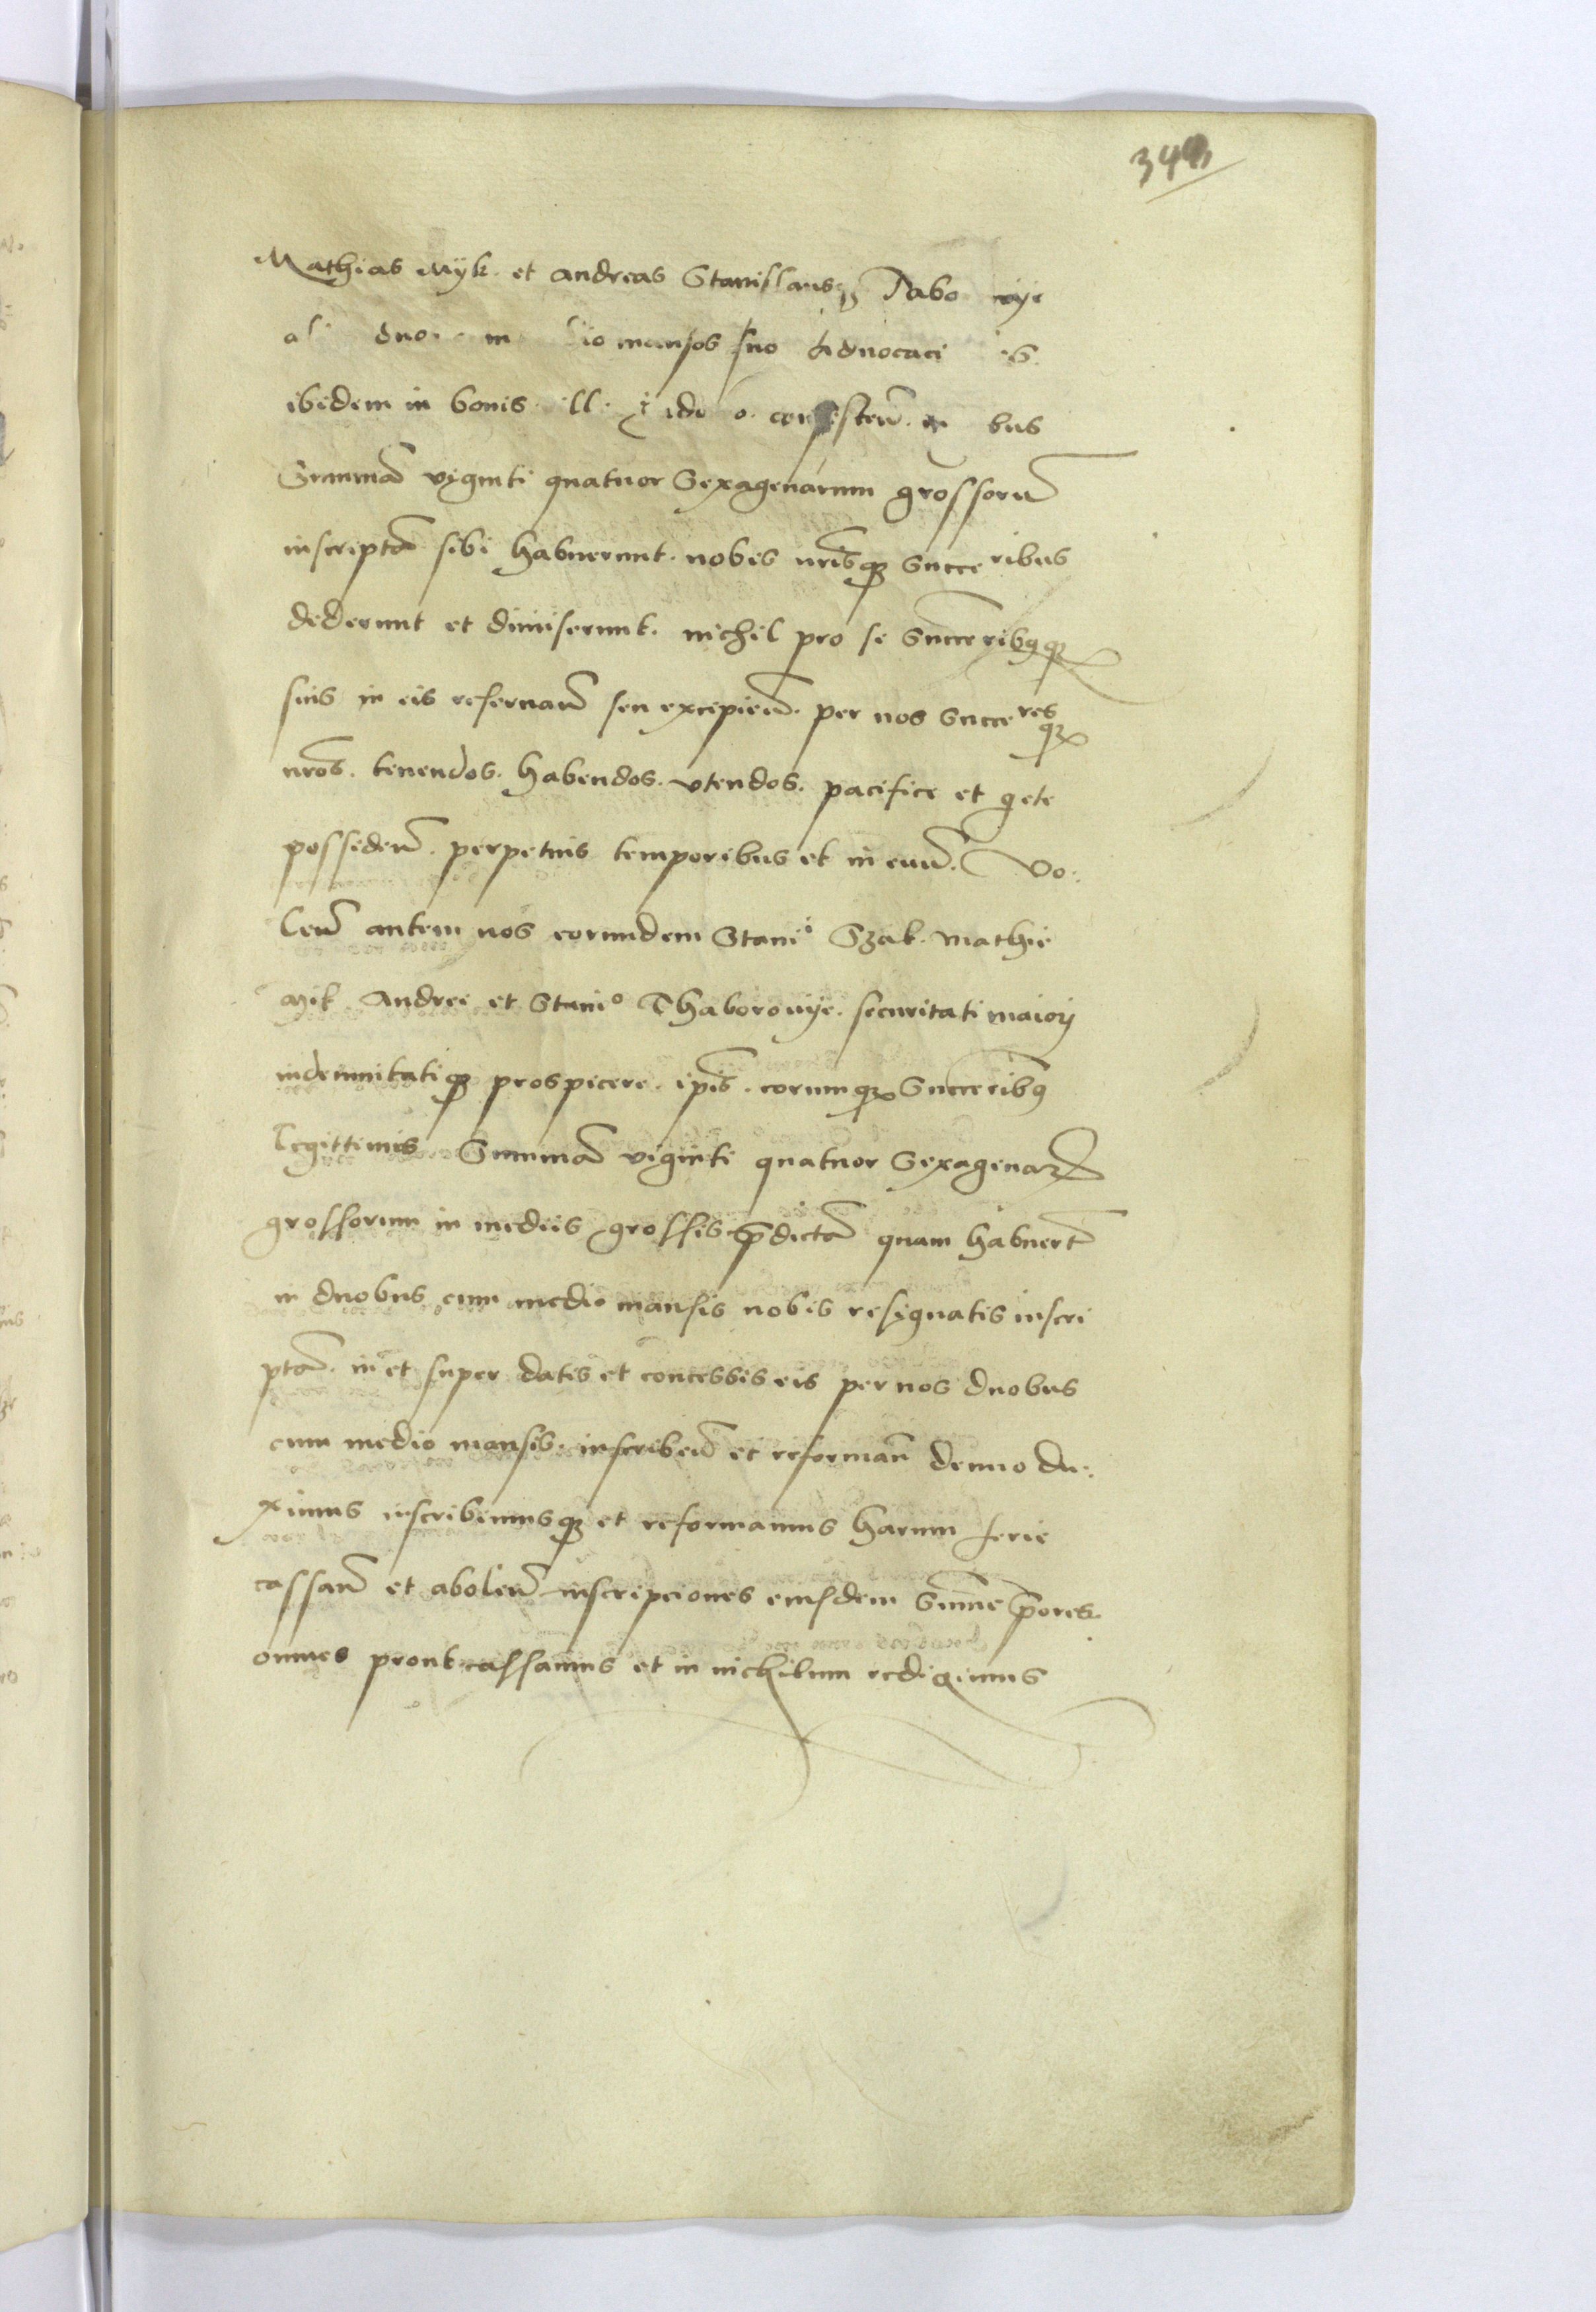 344
Mathias Myk. et Andreas Stanislausq Tabo wye
al duo m dio mansos suo Advocaci is
ibidem in bonis ill. bus
Summā viginti quatuor Sexagenarum grossorū
inscriptā sibi habuerunt. nobis nrīsqȝ Succeribus
dederunt et dimiserunt. nichil pro se Succeribqqȝ
suis in eis reservañ seu excipieñ. per nos Succeresqȝ
nrōs. tenendos. habendos. utendos. pacifice et qete
possideñ. perpetuis temporibus et in evū. Vo:
leñ autem nos eorundem Staniº Szak. Mathie
Mik Andree et Staniº Thaborowye. securitati maiori
indemnitatiqȝ prospicere. ipīs. eorumqȝ Succeribq
Legittimis Summā viginti quatuor Sexagenarꝝ
grossorum in mediis grossis p̄dictā quam habuerū̄t
in duobus cum medio mansis nobis resignatis inscri
ptā. in et super datis et concessis eis per nos duobus
cum medio mansis. inscribeñ et reformañ denuo du:
ximus inscribimusqȝ et reformamus harum serie
cassañ et aboleñ inscripciones eiusdem Summe p̄ores.
omnes prout cassamus et in nichilum redigimus